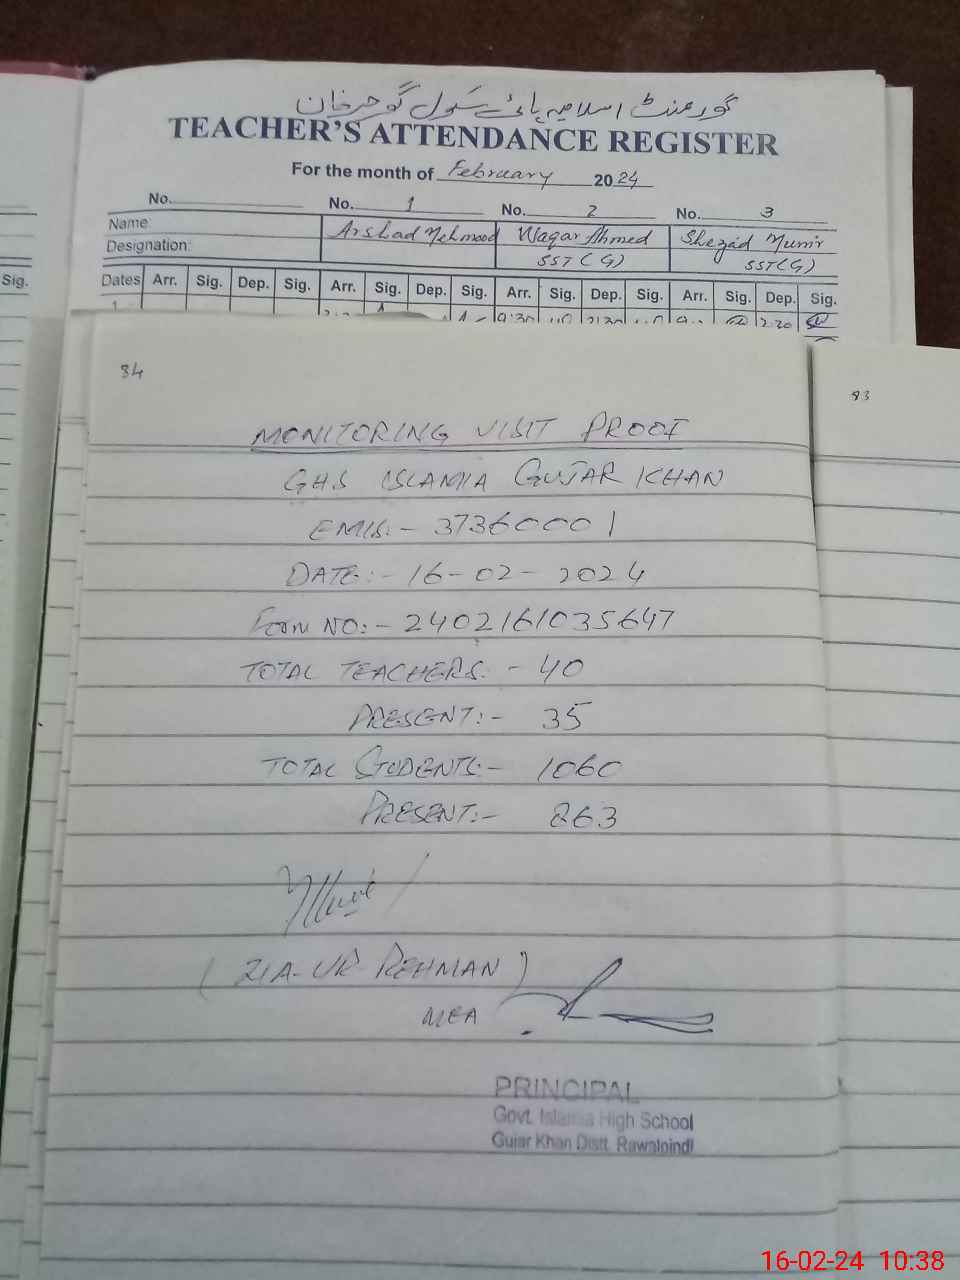 گورمنٹ اسلامیہ ہائی سکول گوجرخان
TEACHER'S ATTENDANCE REGISTER
For the month of February 2024
No. No. 1 No. 2 No. 3
Name: Arshad Mehmood Waqar Ahmed Shezad Munir
Designation: SST(G) SST(G)
Sig.
Dates Arr. Sig. Dep. Sig. Arr. Sig. Dep. Sig. Arr. Sig. Dep. Sig. Arr. Sig. Dep. Sig.
34
83
MONITORING VISIT PROOF
GHS ISLAMIA GUJAR KHAN
EMIS:- 37360001
DATE:- 16-02-2024
Form NO:- 2402161035647
TOTAL TEACHERS:- 40
PRESENT:- 35
TOTAL STUDENTS:- 1060
PRESENT:- 863
(ZIA-UR-REHMAN)
MEA
PRINCIPAL
Govt. Islamia High School
Gujar Khan Distt. Rawalpindi
16-02-24 10:38